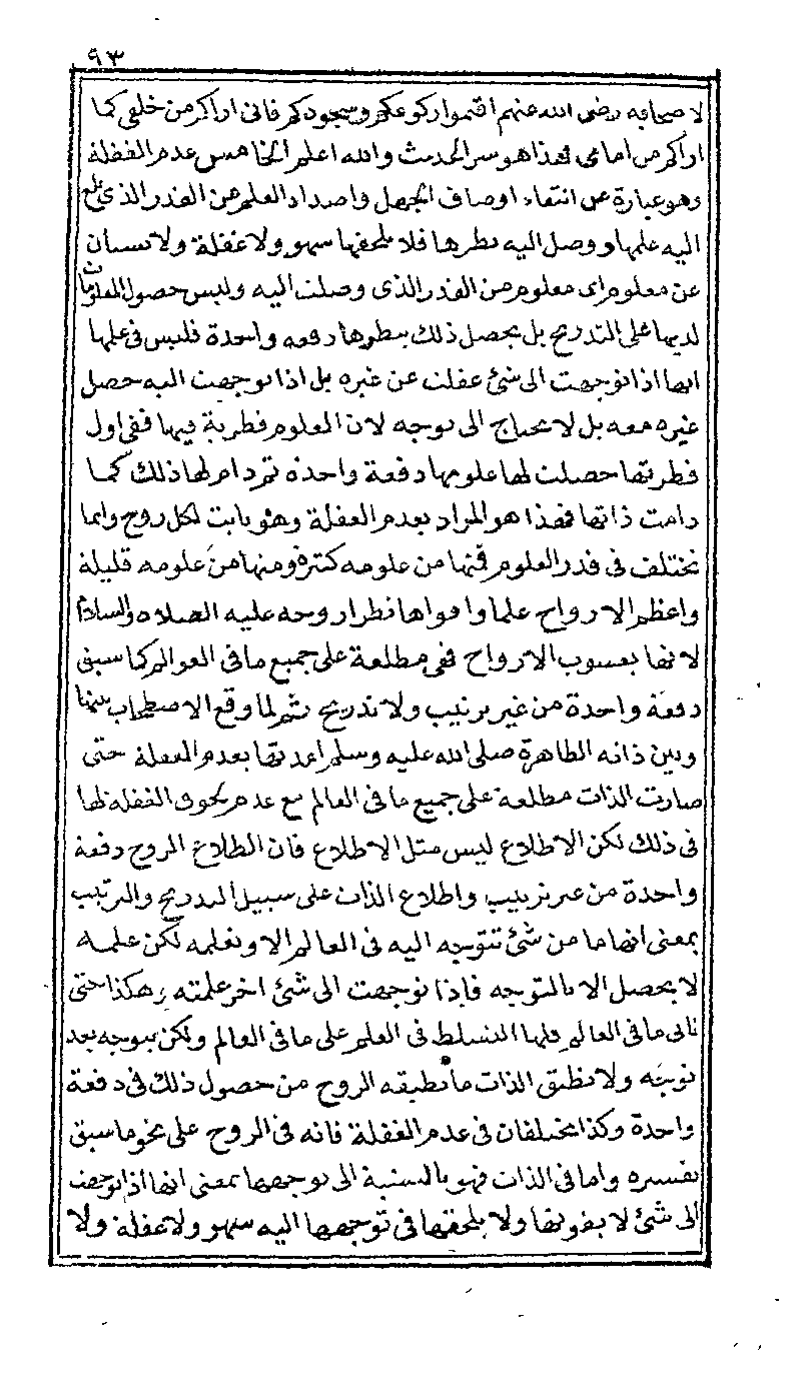 ٩٣
لاصحابه رضى الله عنهم اقيموا ركوعكم وسجودكم فانى اراكم من خلفى كما
اراكم من امامى فهذا هو سر الحديث والله اعلم الخامس عدم الغفلة
وهو عبارة عن انتفاء اوصاف الجهل واضداد العلم عن القدر الذى بلغ
اليه علمها ووصل اليه نظرها فلا يلحقها سهو ولا غفلة ولا نسيان
عن معلوم اى معلوم من القدر الذى وصلت اليه وليس حصول المعلومات
لديها على التدريج بل يحصل ذلك بنظرها دفعه واحدة فليس فى علمها
انها اذا توجهت الى شئ غفلت عن غيره بل اذا توجهت اليه حصل
غيره معه بل لا يحتاج الى توجه لان العلوم فطرية فيها ففى اول
فطرتها حصلت لها علومها دفعة واحدة ثم دام لها ذلك كما
دامت ذاتها فهذا هو المراد بعدم الغفلة وهو ثابت لكل روح وانما
تختلف فى قدر العلوم فمنها من علومه كثيرة ومنها من علومه قليلة
واعظم الارواح علما واقواها نظرا روحه عليه الصلاه والسلام
لانها يعسوب الارواح فهى مطلعة على جميع ما فى العوالم كما سبق
دفعة واحدة من غير ترتيب ولا تدريج ثم لما وقع الاصطحاب بينها
وبين ذاته الطاهرة صلى الله عليه وسلم امدتها بعدم الغفلة حتى
صارت الذات مطلعة على جميع ما فى العالم مع عدم لحوق الغفله لها
فى ذلك لكن الاطلاع ليس مثل الاطلاع فان اطلاع الروح دفعة
واحدة من غير ترتيب واطلاع الذات على سبيل التدريج والترتيب
بمعنى انها ما من شئ تتوجه اليه فى العالم الا وتعلمه لكن علمه
لا يحصل الا بالتوجه فاذا توجهت الى شئ اخر علمته وهكذا حتى
تاتى ما فى العالم فلها التسلط فى العلم على ما فى العالم ولكن بتوجه بعد
توجه ولا تطيق الذات ما تطيقه الروح من حصول ذلك فى دفعة
واحدة وكذا يختلفان فى عدم الغفلة فانه فى الروح على نحو ما سبق
تفسيره واما فى الذات فهو بالنسبة الى توجهها بمعنى انها اذا توجهت
الى شئ لا يفوتها ولا يلحقها فى توجهها اليه سهو ولا غفلة ولا